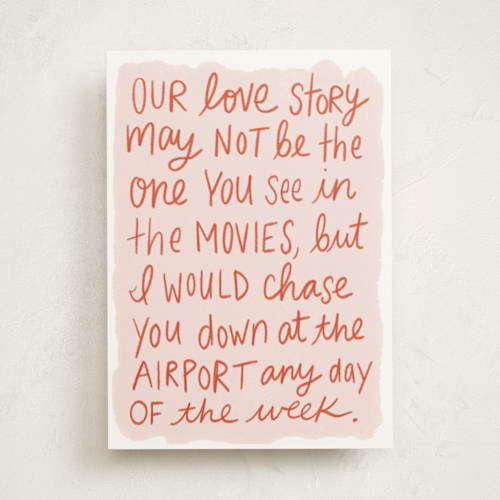 OUR love STORY
may NOT be the
one YOU see in
the MOVIES, but
I WOULD chase
YOU down at the
AIRPORT any day
OF the week.